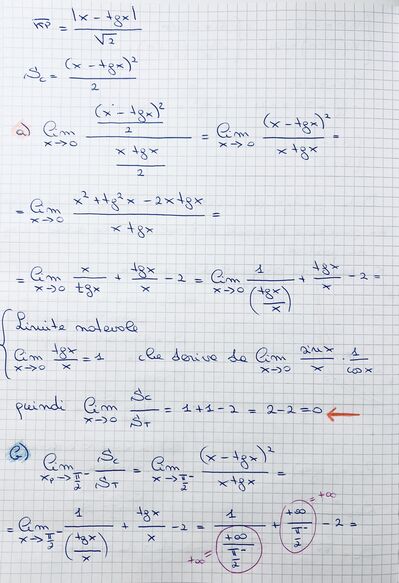 KP = |x - tgx| / √2
Sc = (x - tgx)² / 2
a) lim x→0 ((x - tgx)² / 2) / (x tgx / 2) = lim x→0 (x - tgx)² / (x tgx) =
= lim x→0 (x² + tg²x - 2x tgx) / (x tgx) =
= lim x→0 x/tgx + tgx/x - 2 = lim x→0 1/(tgx/x) + tgx/x - 2 =
Limite notevole
lim x→0 tgx/x = 1 che deriva da lim x→0 sinx/x · 1/cosx
quindi lim x→0 Sc/ST = 1+1-2 = 2-2=0 ←
b) lim xp→π/2⁻ Sc/ST = lim x→π/2⁻ (x - tgx)² / (x tgx) =
= lim x→π/2⁻ 1/(tgx/x) + tgx/x - 2 = 1/(+∞/(π/2⁻)) + +∞/(π/2⁻) - 2 =
+∞ =
= +∞